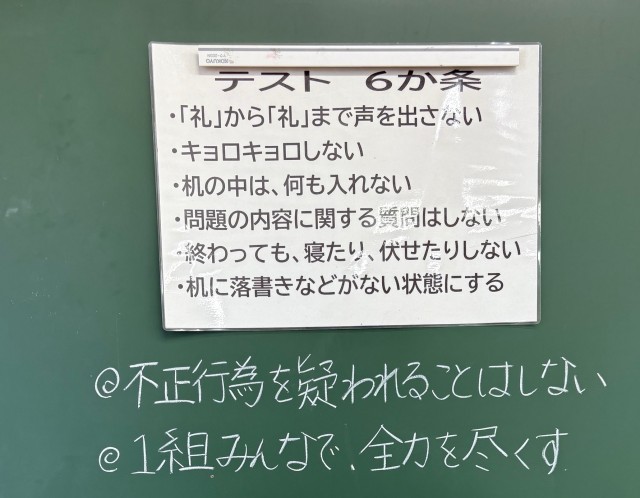 テスト 6か条
・「礼」から「礼」まで声を出さない
・キョロキョロしない
・机の中は、何も入れない
・問題の内容に関する質問はしない
・終わっても、寝たり、伏せたりしない
・机に落書きなどがない状態にする
@不正行為を疑われることはしない
@1組みんなで、全力を尽くす